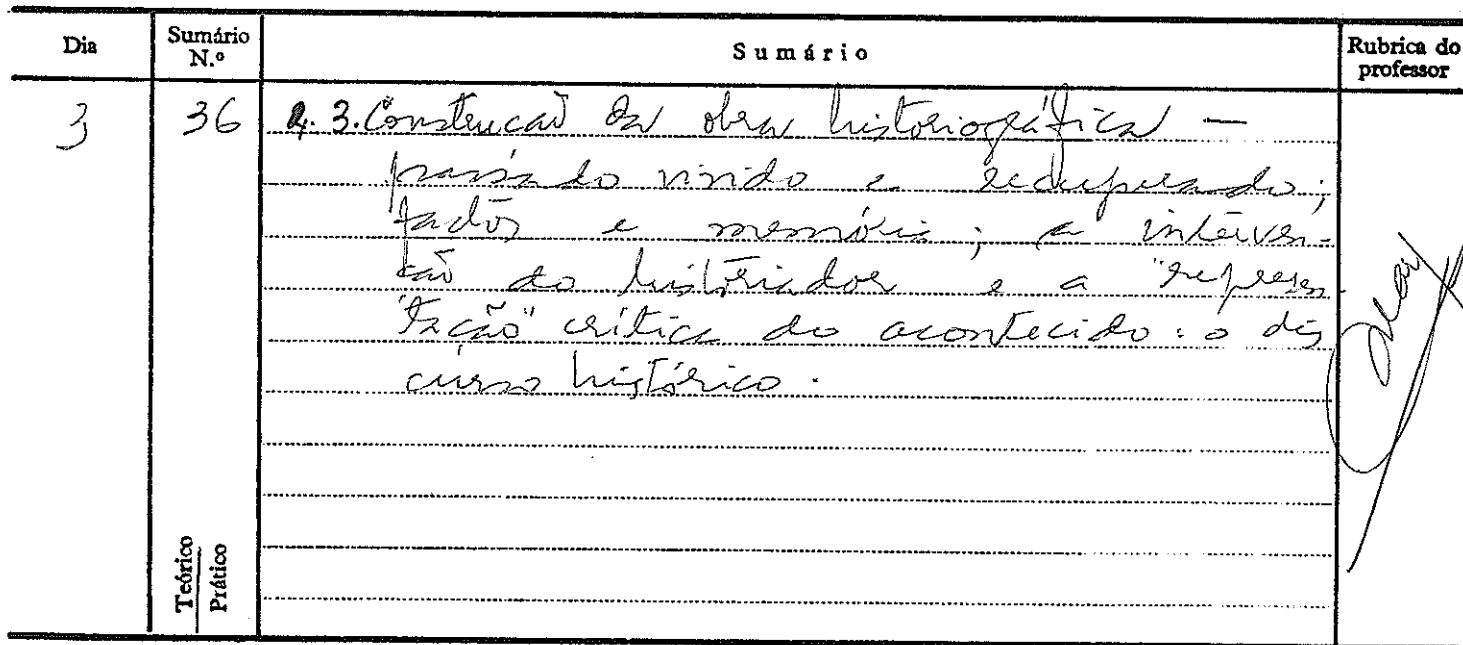 Dia Sumário N.º Sumário Rubrica do professor
3 36 2.3. Construcaõ da obra historiográfica —
passado vivido e recuperado;
factos e memória; a interven-
ção do historiador e a "represen-
"tação" crítica do acontecido: o dis
curso histórico.
Teórico
Prático